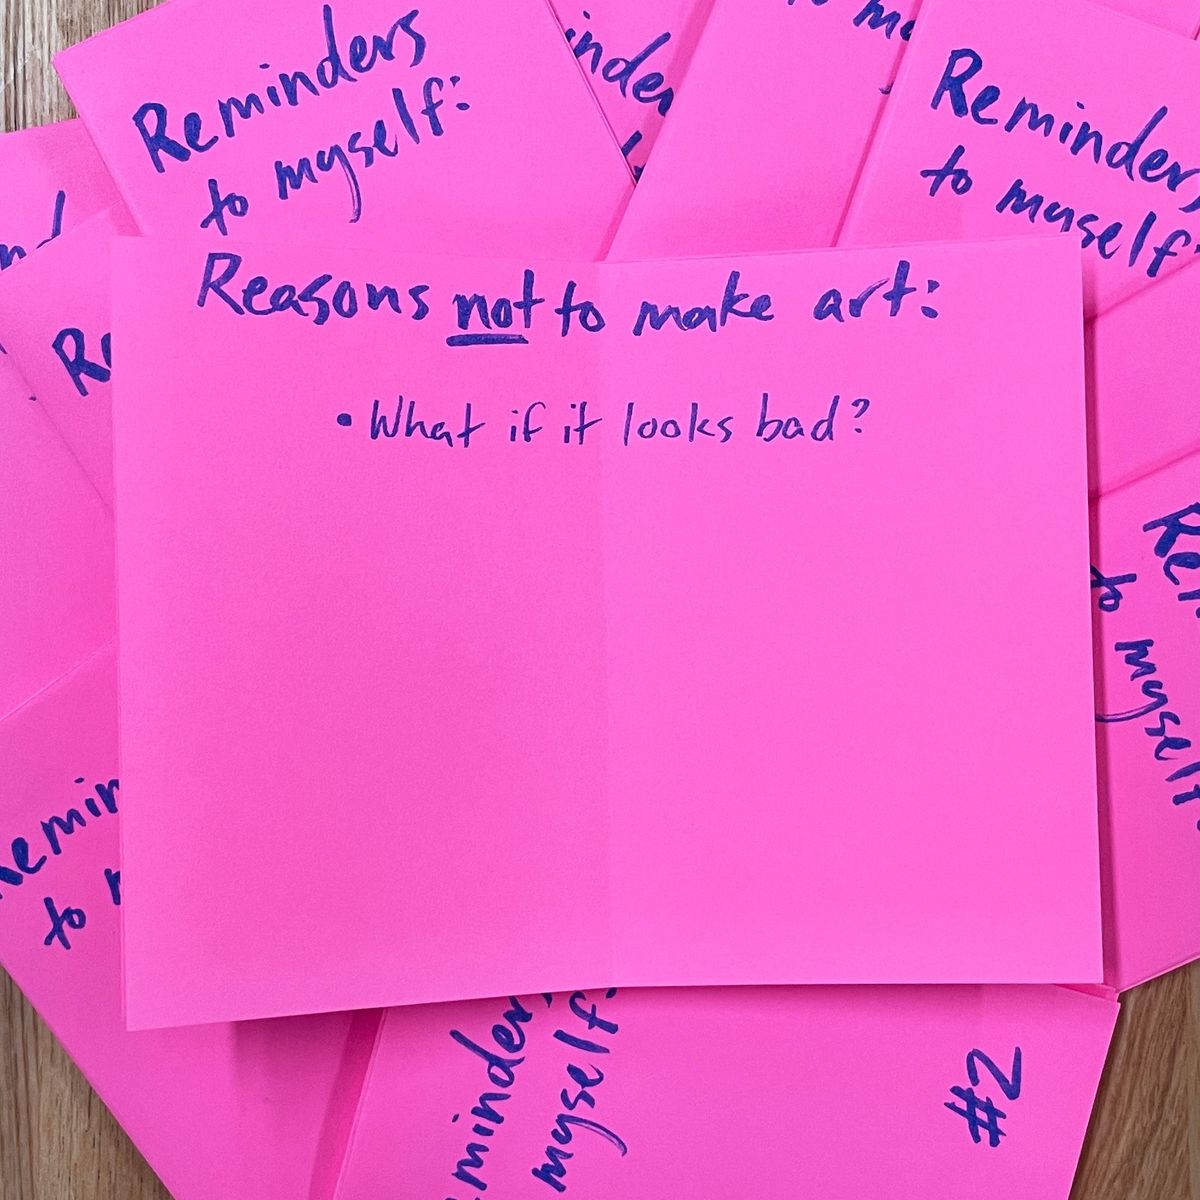 Reminders
to myself:
inder
to my
Reminders
to myself:
Reasons not to make art:
• What if it looks bad?
to myself
to
minders
myself:
#2